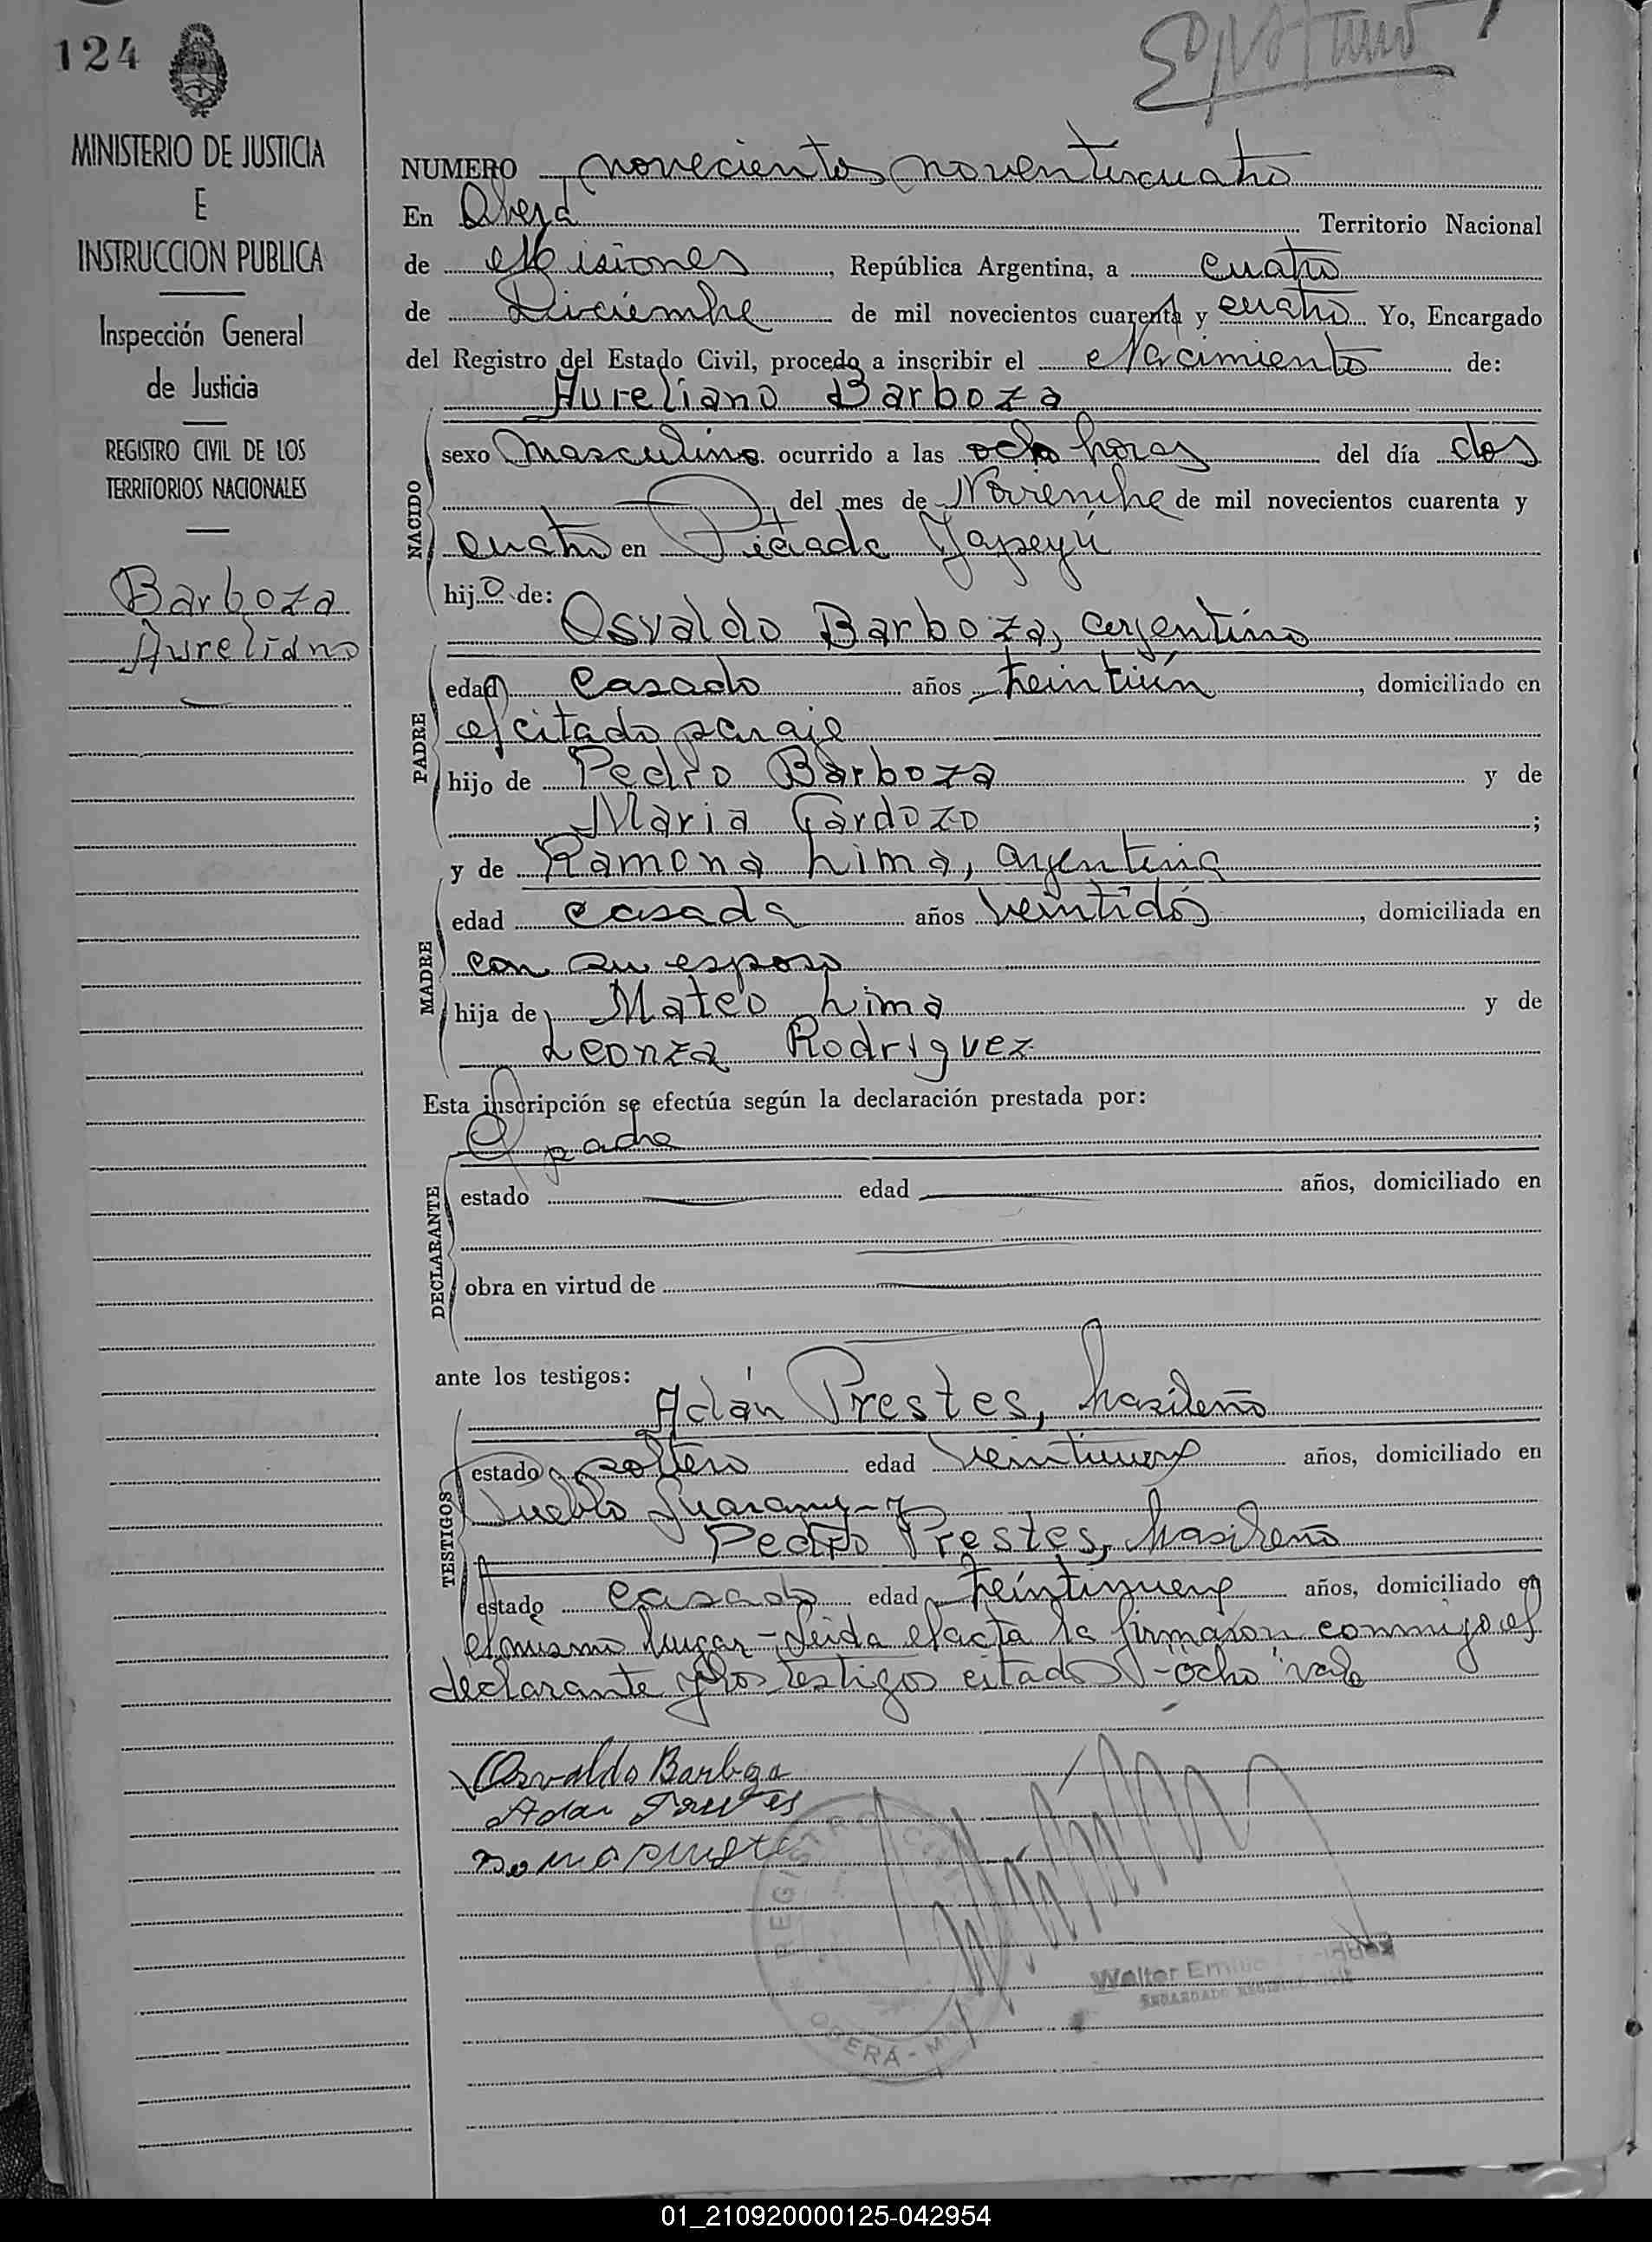 124
MINISTERIO DE JUSTICIA
E
INSTRUCCION PUBLICA
Inspección General
de Justicia
REGISTRO CIVIL DE LOS
TERRITORIOS NACIONALES
Barboza
Aureliano
NUMERO novecientos noventicuatro
En Oberá Territorio Nacional
de Misiones, República Argentina, a cuatro
de Diciembre de mil novecientos cuarenta y cuatro Yo, Encargado
del Registro del Estado Civil, procedo a inscribir el Nacimiento de:
Aureliano Barboza
NACIDO
sexo masculino ocurrido a las ocho horas del día dos
del mes de Noviembre de mil novecientos cuarenta y
cuatro en Picada Yapeyú
hijo de:
Osvaldo Barboza, argentino
PADRE
edad casado años treintiún, domiciliado en
el citado paraje
hijo de Pedro Barboza y de
Maria Cardozo;
y de Ramona Lima, argentina
MADRE
edad casada años veintidós, domiciliada en
con su esposo
hija de Mateo Lima y de
Leonza Rodriguez
Esta inscripción se efectúa según la declaración prestada por:
El padre
DECLARANTE
estado edad años, domiciliado en
obra en virtud de
ante los testigos:
Adán Prestes, brasileño
TESTIGOS
estado soltero edad veintinueve años, domiciliado en
Pueblo Guarany - y
Pedro Prestes, brasileño
estado casado edad treintinueve años, domiciliado en
el mismo lugar - Leida el acta la firmaron conmigo el
declarante y los testigos citados - "ocho" vale
Osvaldo Barboza
Adan Prestes
REGISTRO CIVIL
OBERÁ - M
Walter Emilio
ENCARGADO REGISTRO CIVIL
01_210920000125-042954